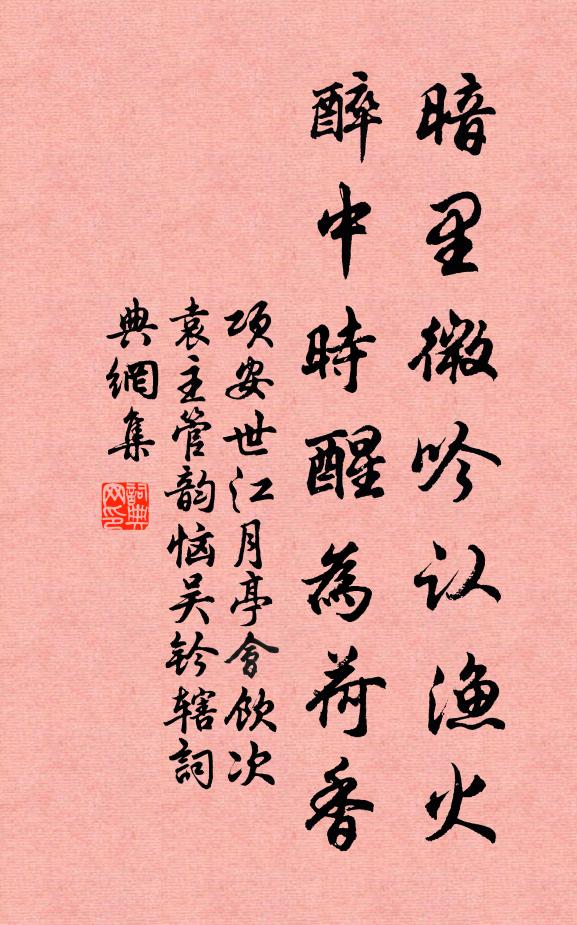 暗里微吟认渔火
醉中時醒為荷香
项安世江月亭會饮次
袁主管韵恼吴钤辖詞
典網集
詞典
网印